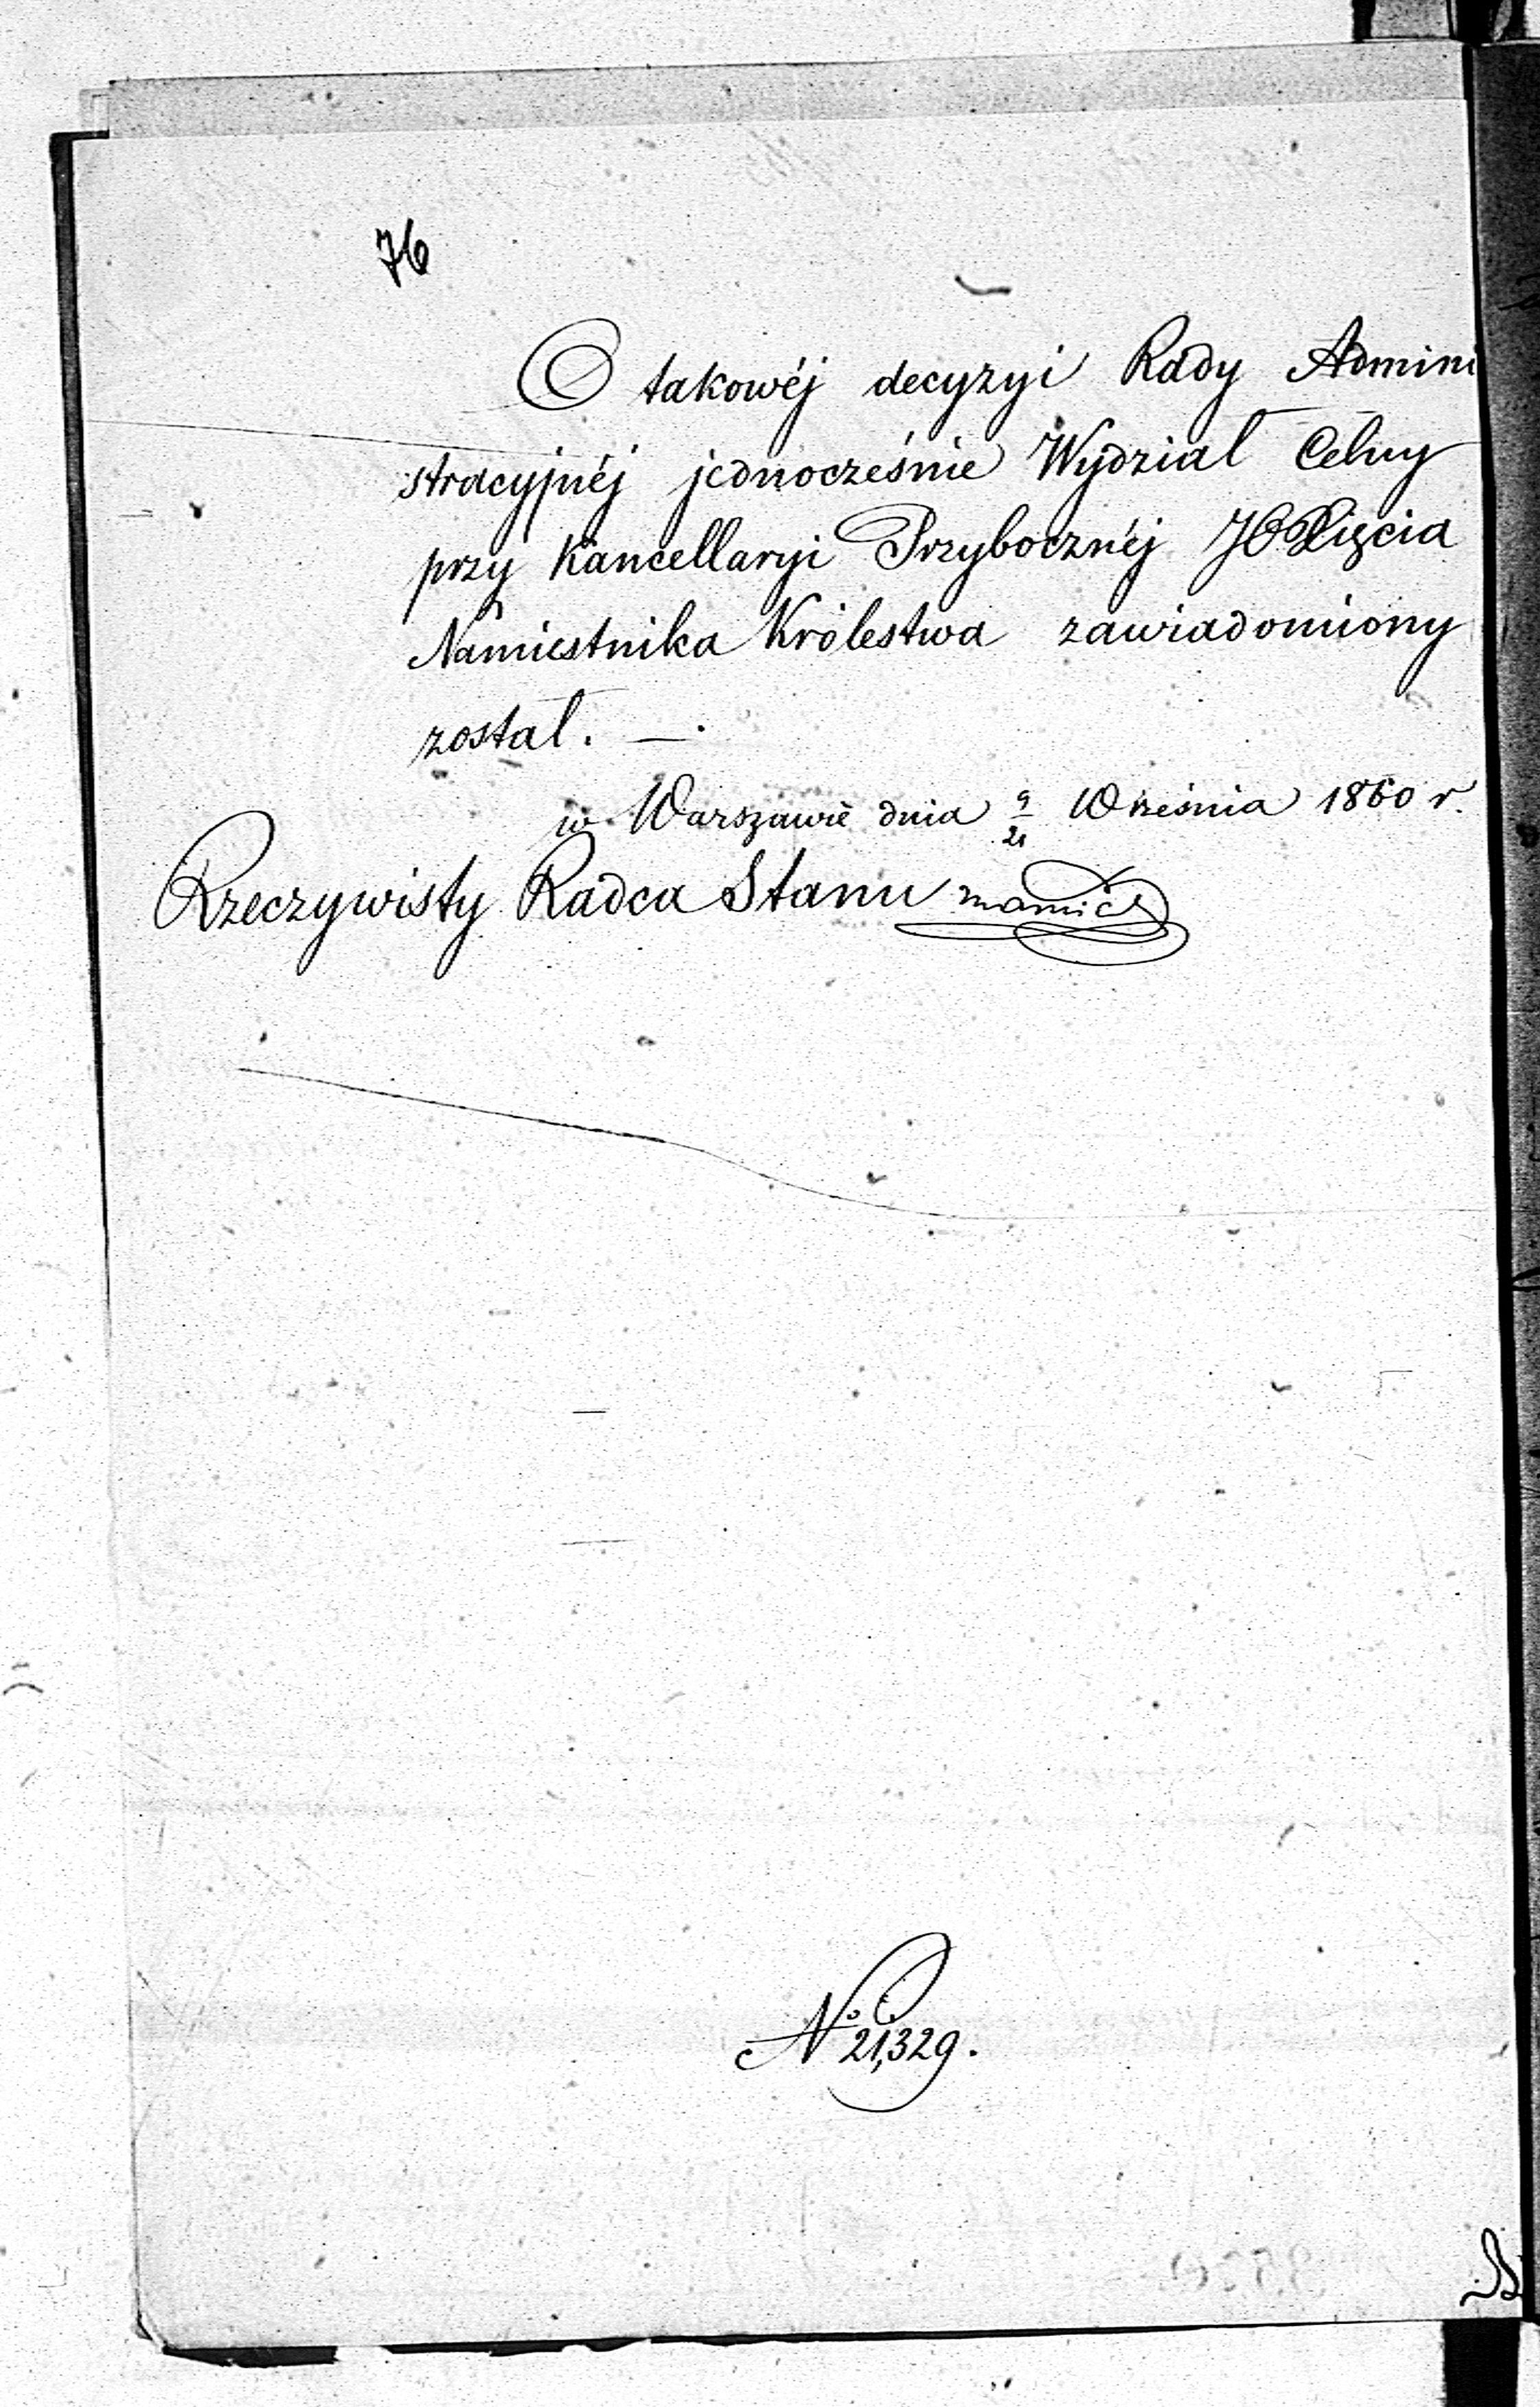 76
O takowéj decyzyi Rady Admini
stracyjnéj jednocześnie Wydział Celny
przy Kancellaryi Przybocznéj JO Xięcia
Namiestnika Królestwa zawiadomiony
został. —
w Warszawie dnia 9/21 Września 1860 r.
Rzeczywisty Radca Stanu
№ 21,329.